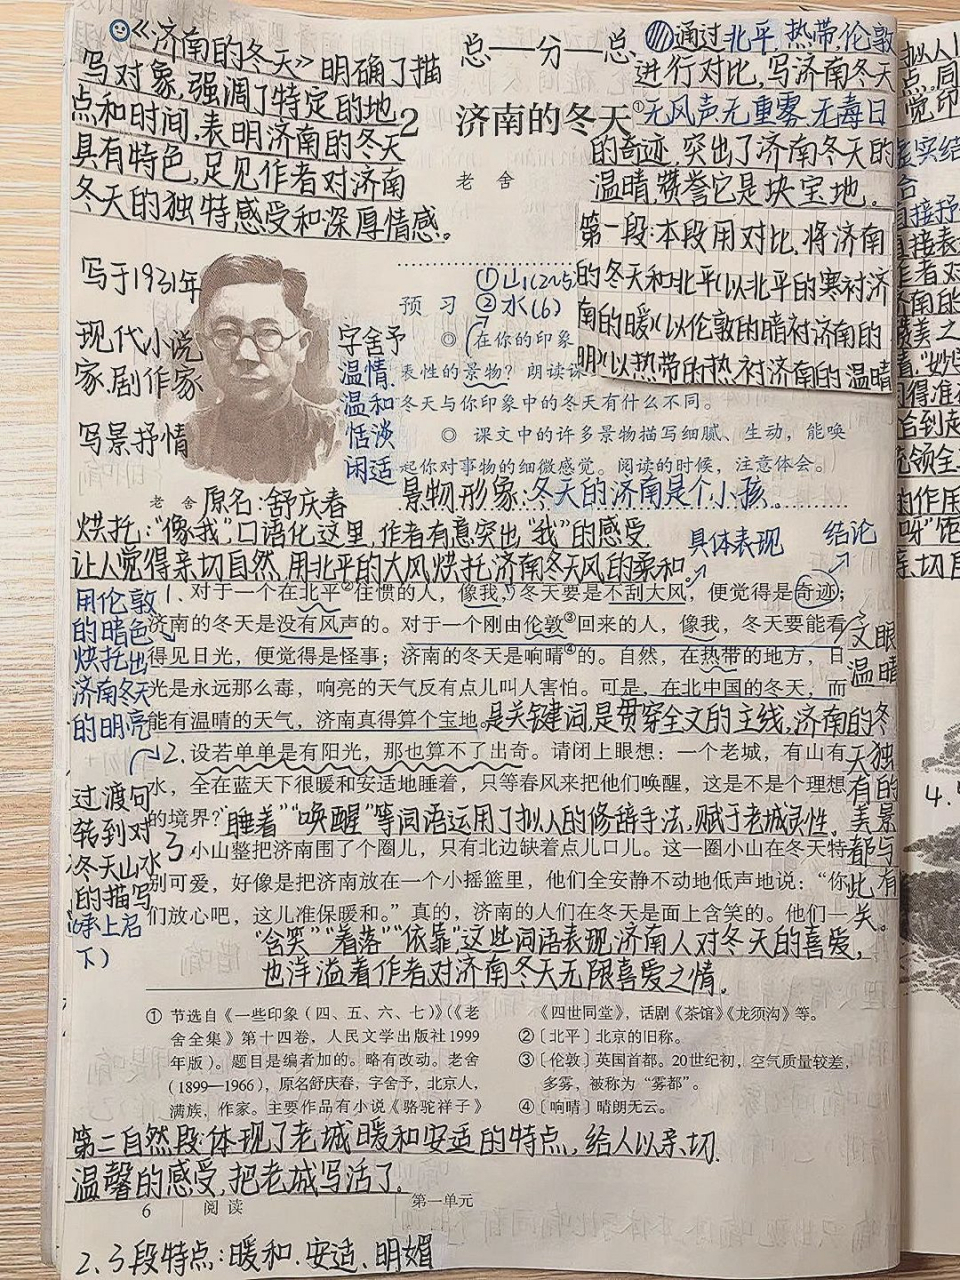 《济南的冬天》明确了描
写对象,强调了特定的地
点和时间,表明济南的冬天
具有特色,足见作者对济南
冬天的独特感受和深厚情感。
总—分—总
通过北平、热带、伦敦
进行对比,写济南冬天
无风声无重雾、无毒日
的奇迹,突出了济南冬天的
温晴,赞誉它是块宝地。
第一段:本段用对比,将济南
的冬天和北平(以北平的寒衬济
南的暖)(以伦敦的暗衬济南的
明)(以热带的热衬济南的温晴
2 济南的冬天①
老 舍
写于1931年
现代小说
家、剧作家
写景抒情
字舍予
温情、
温和
恬淡
闲适
老 舍 原名:舒庆春
①山(2~5)
预 习 ②水(6)
◎ 在你的印象
表性的景物?朗读课
冬天与你印象中的冬天有什么不同。
◎ 课文中的许多景物描写细腻、生动,能唤
起你对事物的细微感觉。阅读的时候,注意体会。
景物形象:冬天的济南是个小孩。
烘托:“像我”口语化这里,作者有意突出“我”的感受
让人觉得亲切自然,用北平的大风烘托济南冬天风的柔和。
具体表现
结论
用伦敦
的暗色
烘托出
济南冬天
的明亮
1.对于一个在北平②住惯的人,像我,冬天要是不刮大风,便觉得是奇迹;
济南的冬天是没有风声的。对于一个刚由伦敦③回来的人,像我,冬天要能看
得见日光,便觉得是怪事;济南的冬天是响晴④的。自然,在热带的地方,日
光是永远那么毒,响亮的天气反有点儿叫人害怕。可是,在北中国的冬天,而
能有温晴的天气,济南真得算个宝地。
文眼
温晴
是关键词,是贯穿全文的主线,济南的冬
天独
有的
美景
都与
此有
关。
过渡句
转到对
冬天山水
的描写
(承上启
下)
2.设若单单是有阳光,那也算不了出奇。请闭上眼想:一个老城,有山有
水,全在蓝天下很暖和安适地睡着,只等春风来把他们唤醒,这是不是个理想
的境界?
“睡着”“唤醒”等词语运用了拟人的修辞手法,赋于老城灵性,
3 小山整把济南围了个圈儿,只有北边缺着点儿口儿。这一圈小山在冬天特
别可爱,好像是把济南放在一个小摇篮里,他们全安静不动地低声地说:“你
们放心吧,这儿准保暖和。”真的,济南的人们在冬天是面上含笑的。他们一
“含笑”“着落”“依靠”这些词语表现济南人对冬天的喜爱,
也洋溢着作者对济南冬天无限喜爱之情。
① 节选自《一些印象(四、五、六、七)》(《老
舍全集》第十四卷,人民文学出版社1999
年版)。题目是编者加的。略有改动。老舍
(1899—1966),原名舒庆春,字舍予,北京人,
满族,作家。主要作品有小说《骆驼祥子》
《四世同堂》,话剧《茶馆》《龙须沟》等。
②〔北平〕北京的旧称。
③〔伦敦〕英国首都。20世纪初,空气质量较差,
多雾,被称为“雾都”。
④〔响晴〕晴朗无云。
第二自然段:体现了老城暖和安适的特点,给人以亲切、
温馨的感受,把老城写活了。
6 阅读 第一单元
2、3段特点:暖和、安适、明媚